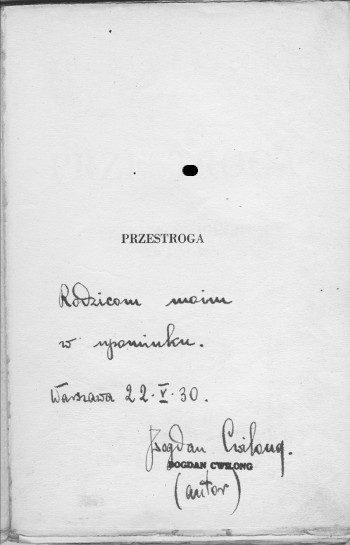 PRZESTROGA
Rodzicom moim
w upominku.
Warszawa 22·V·30.
Bogdan Cwilong.
BOGDAN CWILONG
(autor)